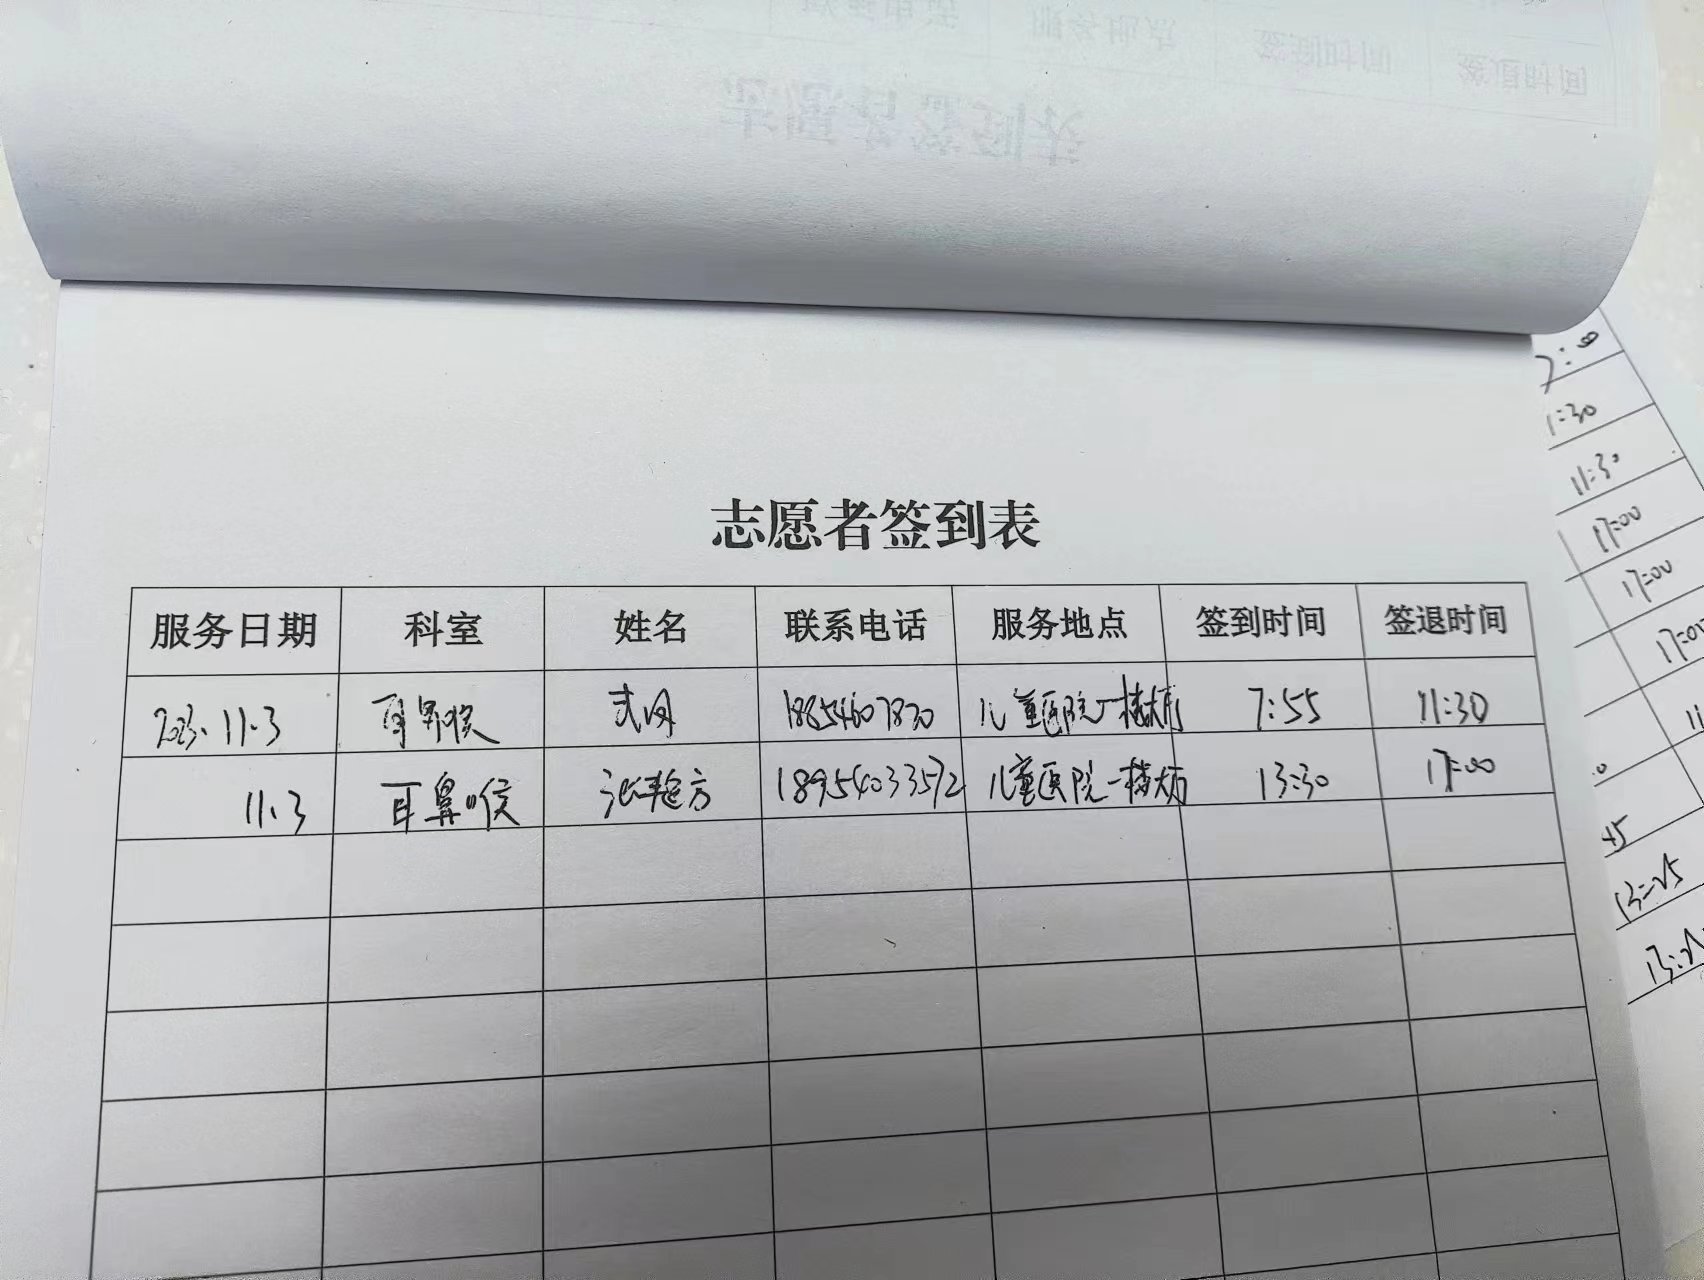 志愿者签到表
服务日期 科室 姓名 联系电话 服务地点 签到时间 签退时间
2023.11.3 耳鼻喉 18854607830 儿童医院一楼大厅 7:55 11:30
11.3 耳鼻喉 18954033592 儿童医院一楼大厅 13:30 17:00
1:30
11:30
17:00
17:00
17:00
45